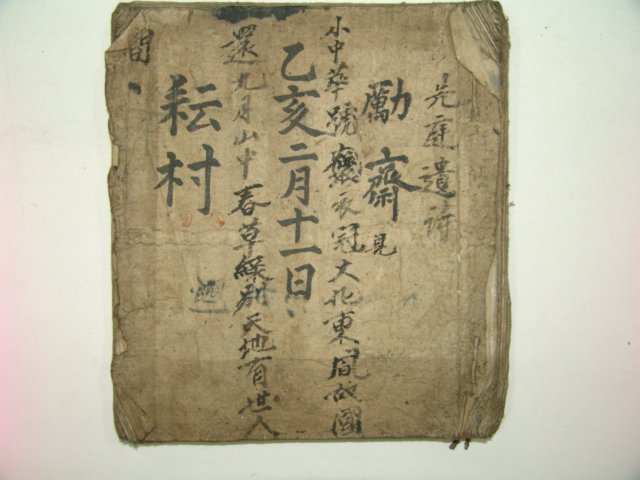 先庭遺詩
勵齋見
小中華號
衣冠大
東風故國
乙亥二月十一日
還九月山中春草緑別天地有世人
耘村
間